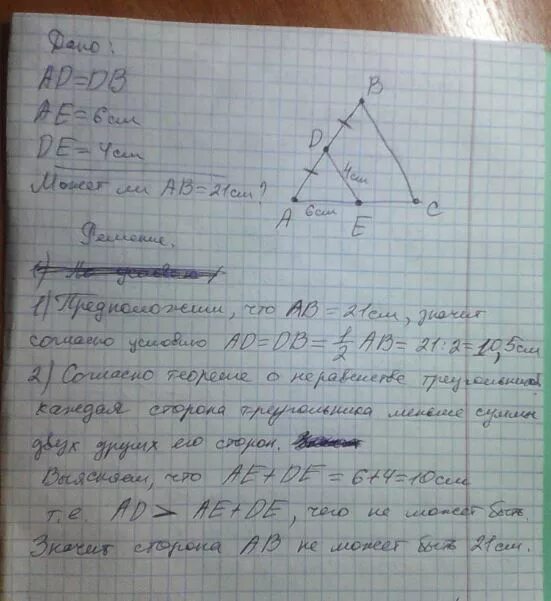 Дано:
AD=DB
AE=6см
DE=4см
Может ли AB=21см?
B
D
4см
A
6см
E
C
Решение.
1) По условию
1) Предположим, что AB=21см, значит
согласно условию AD=DB=1/2 AB=21:2=10,5см
2) Согласно теореме о неравенстве треугольников
каждая сторона треугольника меньше суммы
двух других его сторон.
Выясняем, что AE+DE=6+4=10см
т.е. AD > AE+DE, чего не может быть.
Значит сторона AB не может быть 21см.